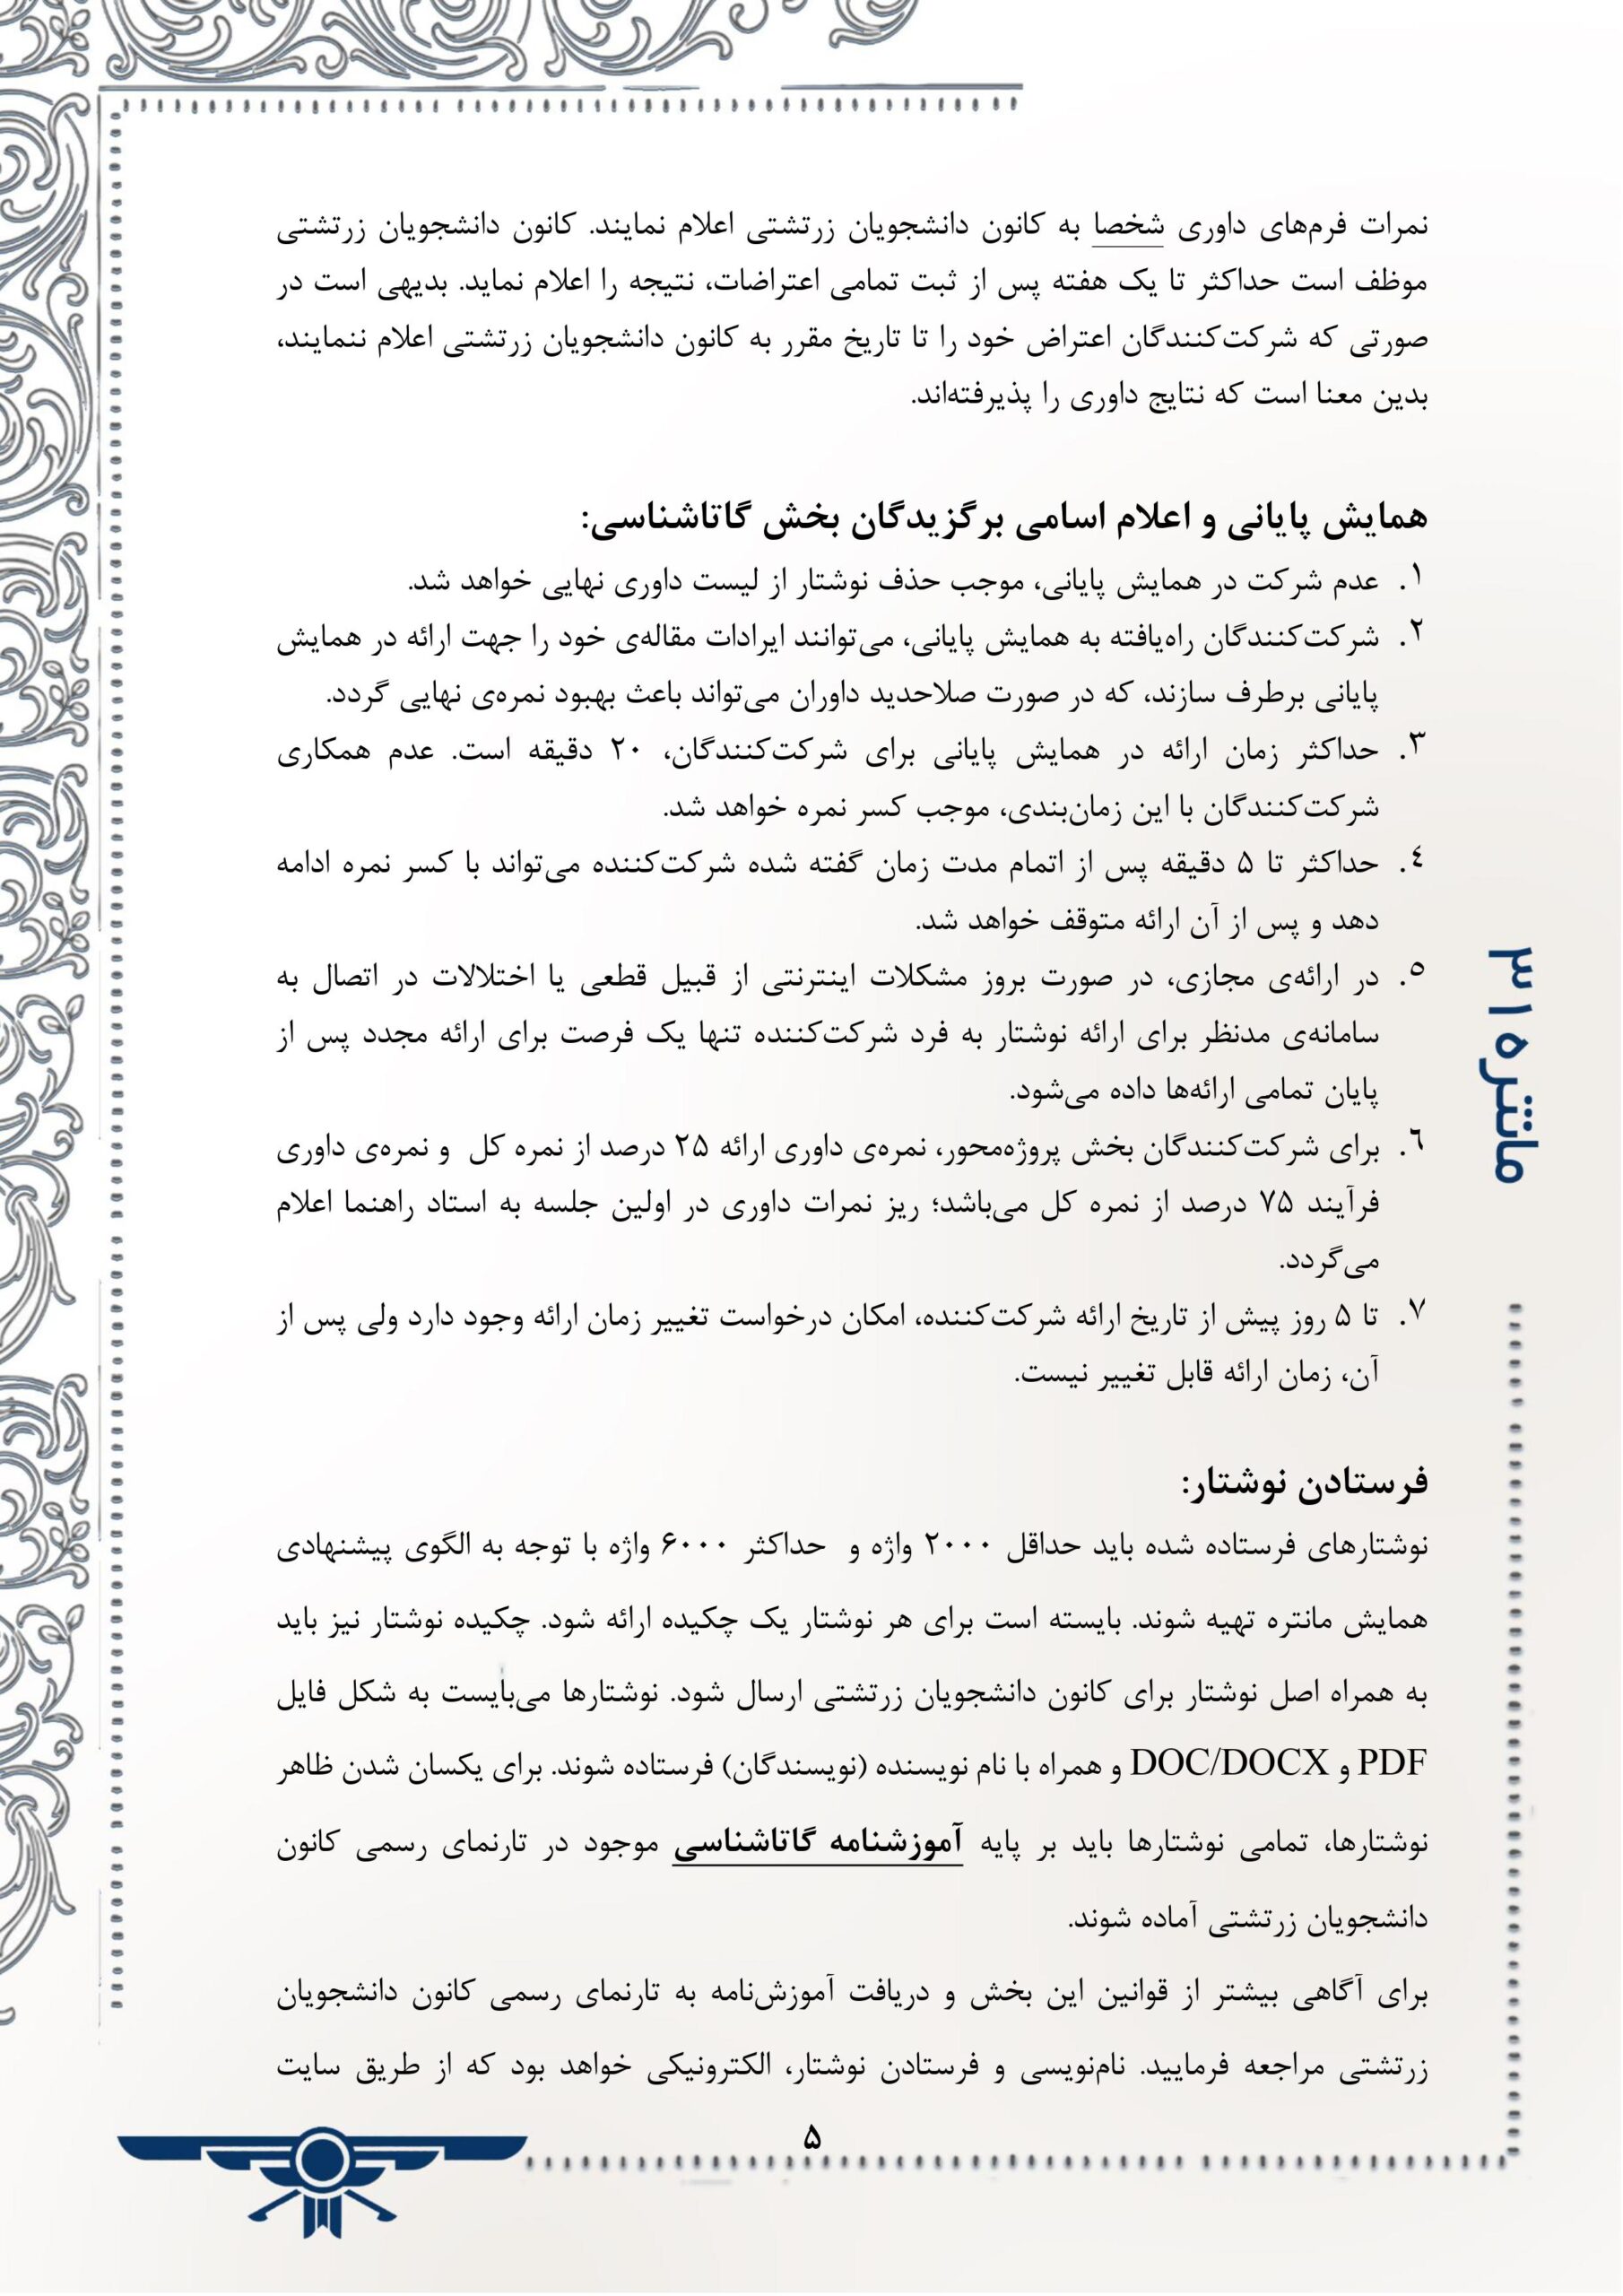 نمرات فرم‌های داوری شخصا به کانون دانشجویان زرتشتی اعلام نمایند. کانون دانشجویان زرتشتی
موظف است حداکثر تا یک هفته پس از ثبت تمامی اعتراضات، نتیجه را اعلام نماید. بدیهی است در
صورتی که شرکت‌کنندگان اعتراض خود را تا تاریخ مقرر به کانون دانشجویان زرتشتی اعلام ننمایند،
بدین معنا است که نتایج داوری را پذیرفته‌اند.
همایش پایانی و اعلام اسامی برگزیدگان بخش گاتاشناسی:
۱. عدم شرکت در همایش پایانی، موجب حذف نوشتار از لیست داوری نهایی خواهد شد.
۲. شرکت‌کنندگان راه‌یافته به همایش پایانی، می‌توانند ایرادات مقاله‌ی خود را جهت ارائه در همایش
پایانی برطرف سازند، که در صورت صلاحدید داوران می‌تواند باعث بهبود نمره‌ی نهایی گردد.
۳. حداکثر زمان ارائه در همایش پایانی برای شرکت‌کنندگان، ۲۰ دقیقه است. عدم همکاری
شرکت‌کنندگان با این زمان‌بندی، موجب کسر نمره خواهد شد.
٤. حداکثر تا ۵ دقیقه پس از اتمام مدت زمان گفته شده شرکت‌کننده می‌تواند با کسر نمره ادامه
دهد و پس از آن ارائه متوقف خواهد شد.
٥. در ارائه‌ی مجازی، در صورت بروز مشکلات اینترنتی از قبیل قطعی یا اختلالات در اتصال به
سامانه‌ی مدنظر برای ارائه نوشتار به فرد شرکت‌کننده تنها یک فرصت برای ارائه مجدد پس از
پایان تمامی ارائه‌ها داده می‌شود.
٦. برای شرکت‌کنندگان بخش پروژه‌محور، نمره‌ی داوری ارائه ۲۵ درصد از نمره کل و نمره‌ی داوری
فرآیند ۷۵ درصد از نمره کل می‌باشد؛ ریز نمرات داوری در اولین جلسه به استاد راهنما اعلام
می‌گردد.
۷. تا ۵ روز پیش از تاریخ ارائه شرکت‌کننده، امکان درخواست تغییر زمان ارائه وجود دارد ولی پس از
آن، زمان ارائه قابل تغییر نیست.
مانتره ۳۱
فرستادن نوشتار:
نوشتارهای فرستاده شده باید حداقل ۲۰۰۰ واژه و حداکثر ۶۰۰۰ واژه با توجه به الگوی پیشنهادی
همایش مانتره تهیه شوند. بایسته است برای هر نوشتار یک چکیده ارائه شود. چکیده نوشتار نیز باید
به همراه اصل نوشتار برای کانون دانشجویان زرتشتی ارسال شود. نوشتارها می‌بایست به شکل فایل
PDF و DOC/DOCX و همراه با نام نویسنده (نویسندگان) فرستاده شوند. برای یکسان شدن ظاهر
نوشتارها، تمامی نوشتارها باید بر پایه آموزشنامه گاتاشناسی موجود در تارنمای رسمی کانون
دانشجویان زرتشتی آماده شوند.
برای آگاهی بیشتر از قوانین این بخش و دریافت آموزش‌نامه به تارنمای رسمی کانون دانشجویان
زرتشتی مراجعه فرمایید. نام‌نویسی و فرستادن نوشتار، الکترونیکی خواهد بود که از طریق سایت
۵